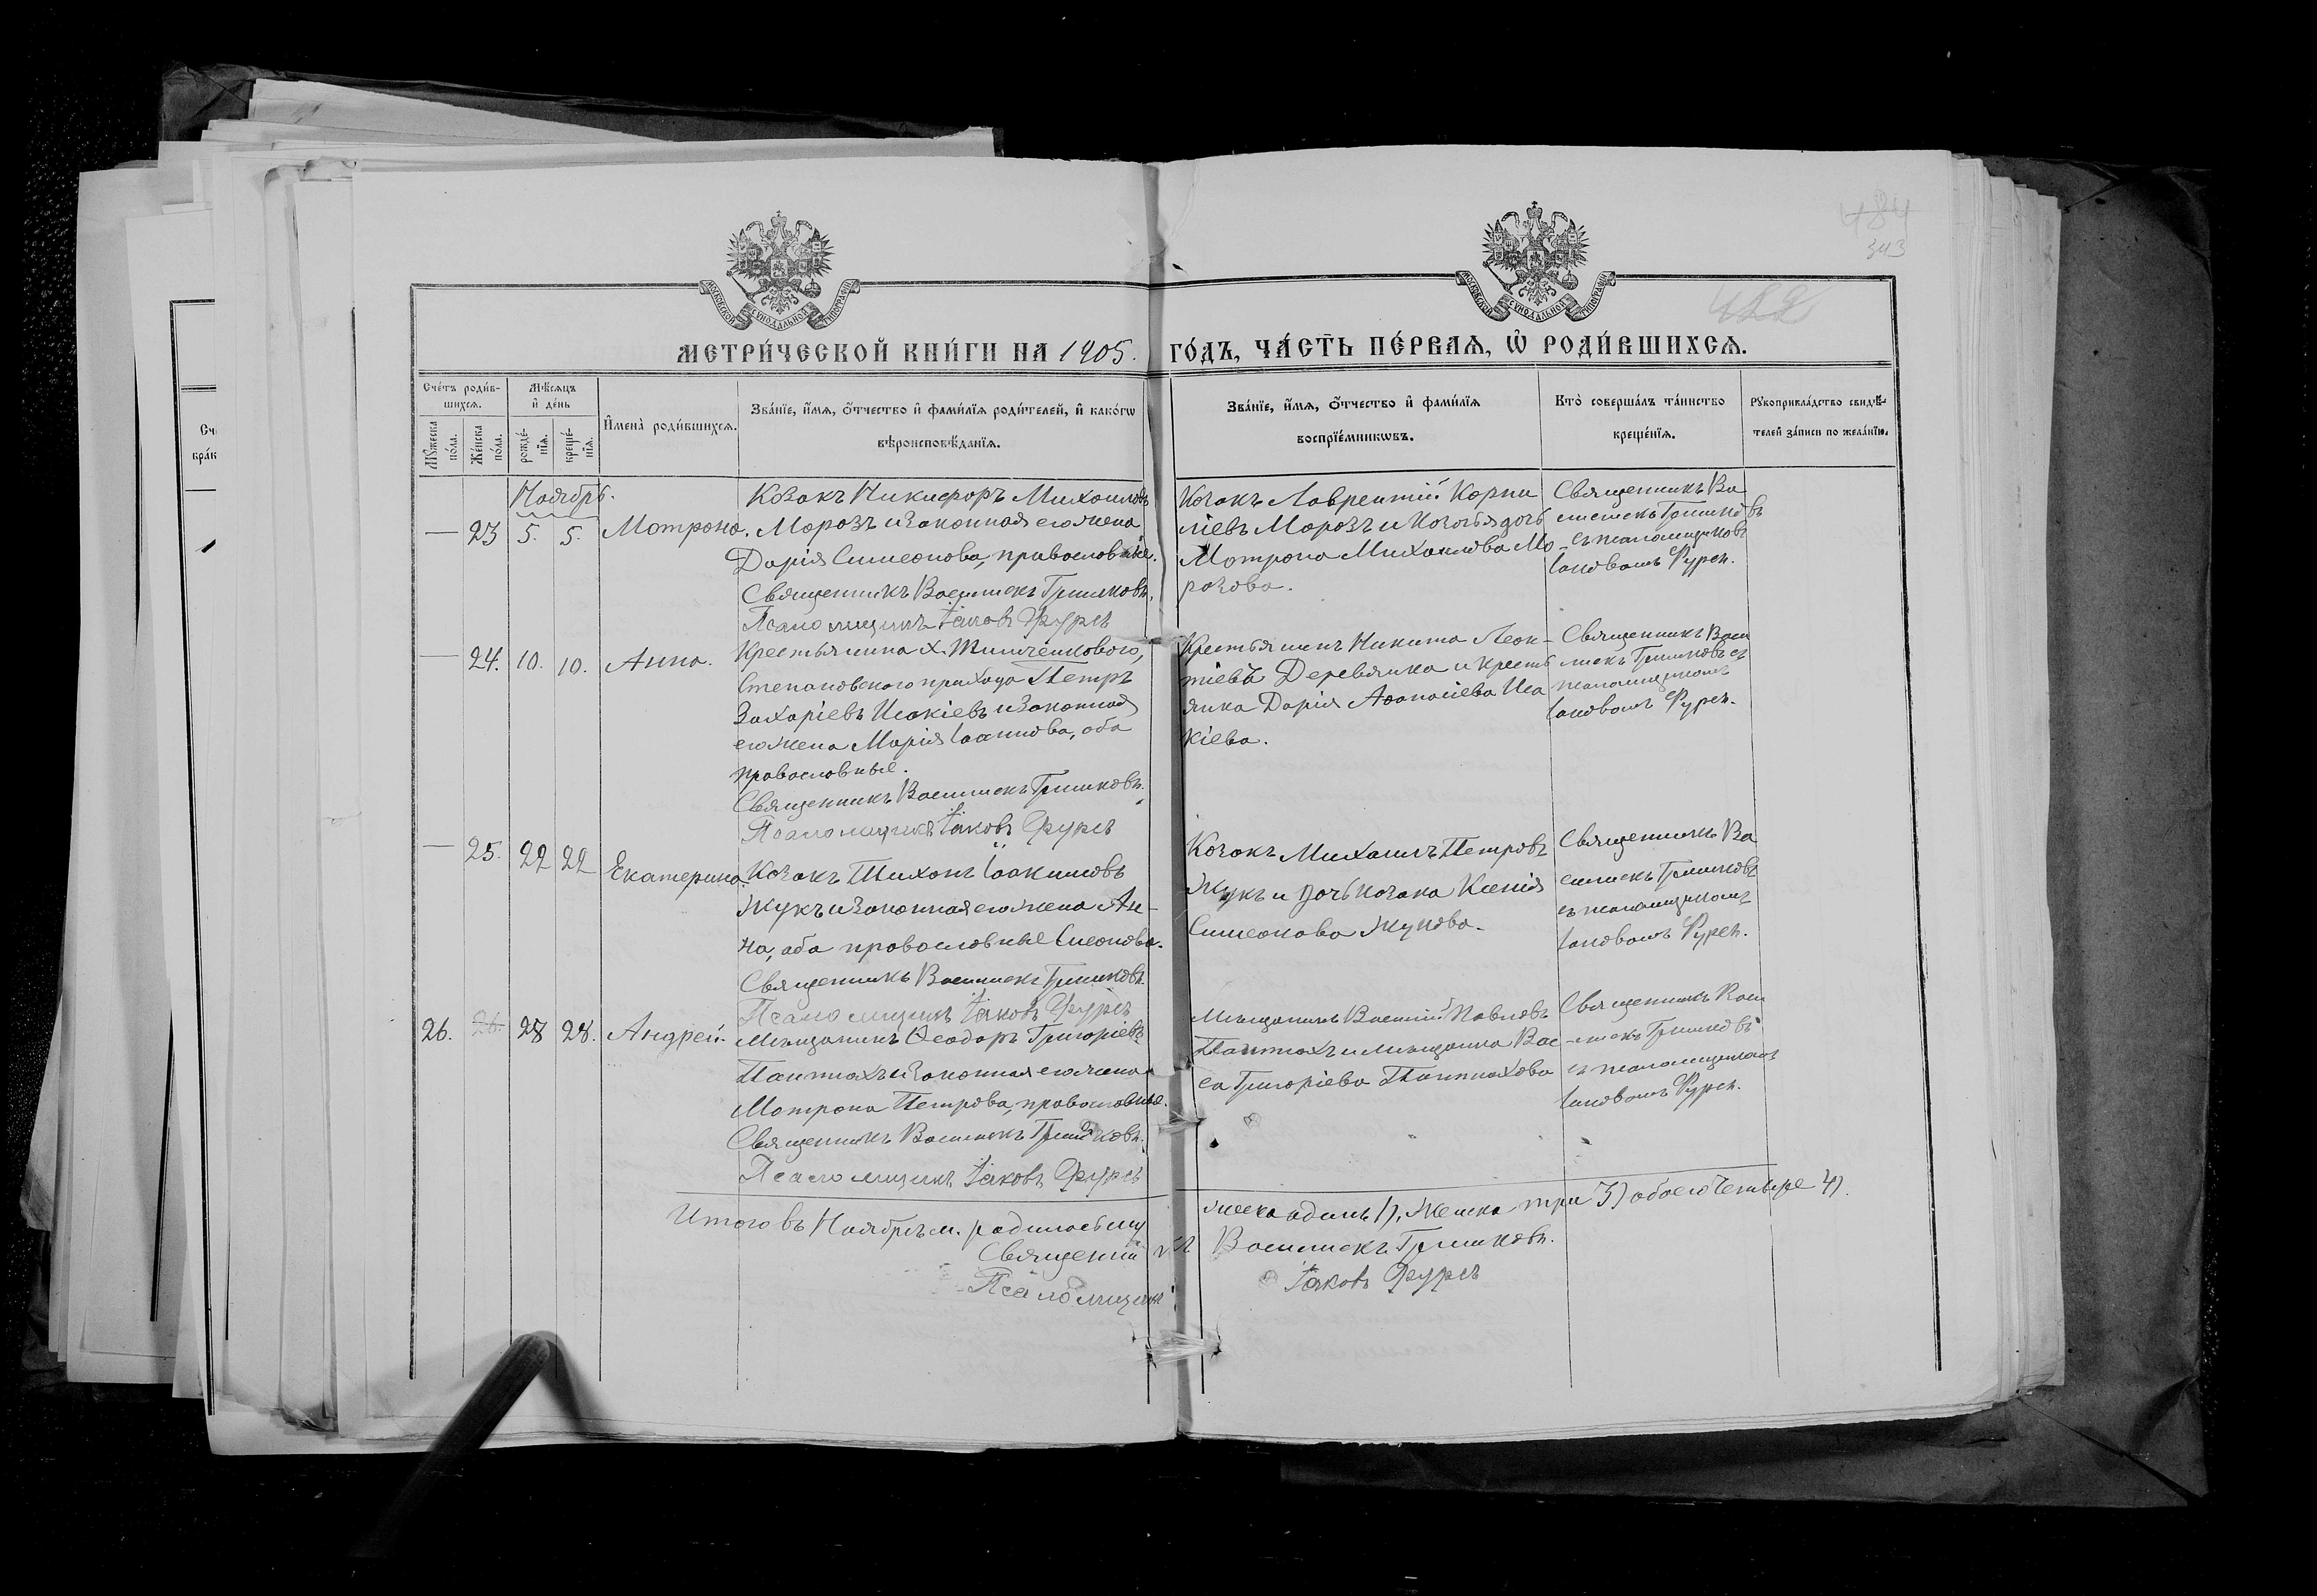 484
343
МОСКОВСКОЙ СѴНОДАЛЬНОЙ ТИПОГРАФІИ
МОСКОВСКОЙ СѴНОДАЛЬНОЙ ТИПОГРАФІИ
МЕТРИ́ЧЕСКОЙ КНИ́ГИ НА 1905. ГО́ДЪ, ЧА́СТЬ ПЕ́РВАЯ, Ѡ РОДИ́ВШИХСЯ.
Сче́тъ роди́в-
шихся.
Мꙋ́жеска по́ла.
Же́нска по́ла.
Мѣ́сяцъ
и де́нь
рожде́нїя.
креще́нїя.
Имена̀ роди́вшихся.
Зва́нїе, и́мя, о́тчество и фами́лїя роди́телей, и како́гѡ
вѣроисповѣ́данїя.
Зва́нїе, и́мя, о́тчество и фами́лїя
воспрїе́мникѡвъ.
Кто̀ соверша́лъ та́инство
креще́нїя.
Рꙋкоприкла́дство свидѣ́-
телей за́писи по жела́нїю.
Ноябрь.
— 23 5. 5. Мотрона.
Козакъ Никифоръ Михаиловъ
Морозъ и законная его жена
Дарія Симеонова, православные.
Священникъ Василискъ Гришковъ.
Псаломщикъ Іаковъ Фурсъ
Козакъ Лаврентій Корни
ліевъ Морозъ и козачья дочь
Мотрона Михаилова Мо-
розова.
Священникъ Ва
силискъ Гришковъ
съ псаломщикомъ
Іаковомъ Фурсъ.
— 24. 10. 10. Анна.
Крестьянина х. Тимченкового,
Степановского прихода Петръ
Захаріевъ Исакіевъ и законная
его жена Марія Іоаннова, оба
православные.
Священникъ Василискъ Гришковъ.
Псаломщикъ Іаковъ Фурсъ
Крестьянинъ Никита Леон-
тіевъ Деревянка и кресть
янка Дарія Аѳанасіева Иса
кіева.
Священникъ Васи
лискъ Гришковъ съ
псаломщикомъ
Іаковомъ Фурсъ.
— 25. 22 22 Екатерина.
Козакъ Тихонъ Іоакимовъ
Жукъ и законная его жена Ан-
на, оба православные Симеонова.
Священникъ Василискъ Гришковъ.
Псаломщикъ Іаковъ Фурсъ
Козакъ Михаилъ Петровъ
Жукъ и дочь козака Ксенія
Симеонова Жукова.
Священникъ Ва
силискъ Гришковъ
съ псаломщикомъ
Іаковомъ Фурсъ.
26. 26. 28 28. Андрей.
Мѣщанинъ Ѳеодоръ Григоріевъ
Пантлахъ и законная его жена
Мотрона Петрова, православные.
Священникъ Василискъ Гришковъ.
Псаломщикъ Іаковъ Фурсъ
Мѣщанинъ Василій Павловъ
Пантлахъ и мѣщанка Вас
са Григоріева Пантлахова
Священникъ Васи
лискъ Гришковъ
съ псаломщикомъ
Іаковомъ Фурсъ.
Итого въ Ноябрѣ м. родилось му
жеска одинъ 1), женска три 3) обоего четыре 4).
Священникъ Василискъ Гришковъ.
Псаломщикъ Іаковъ Фурсъ